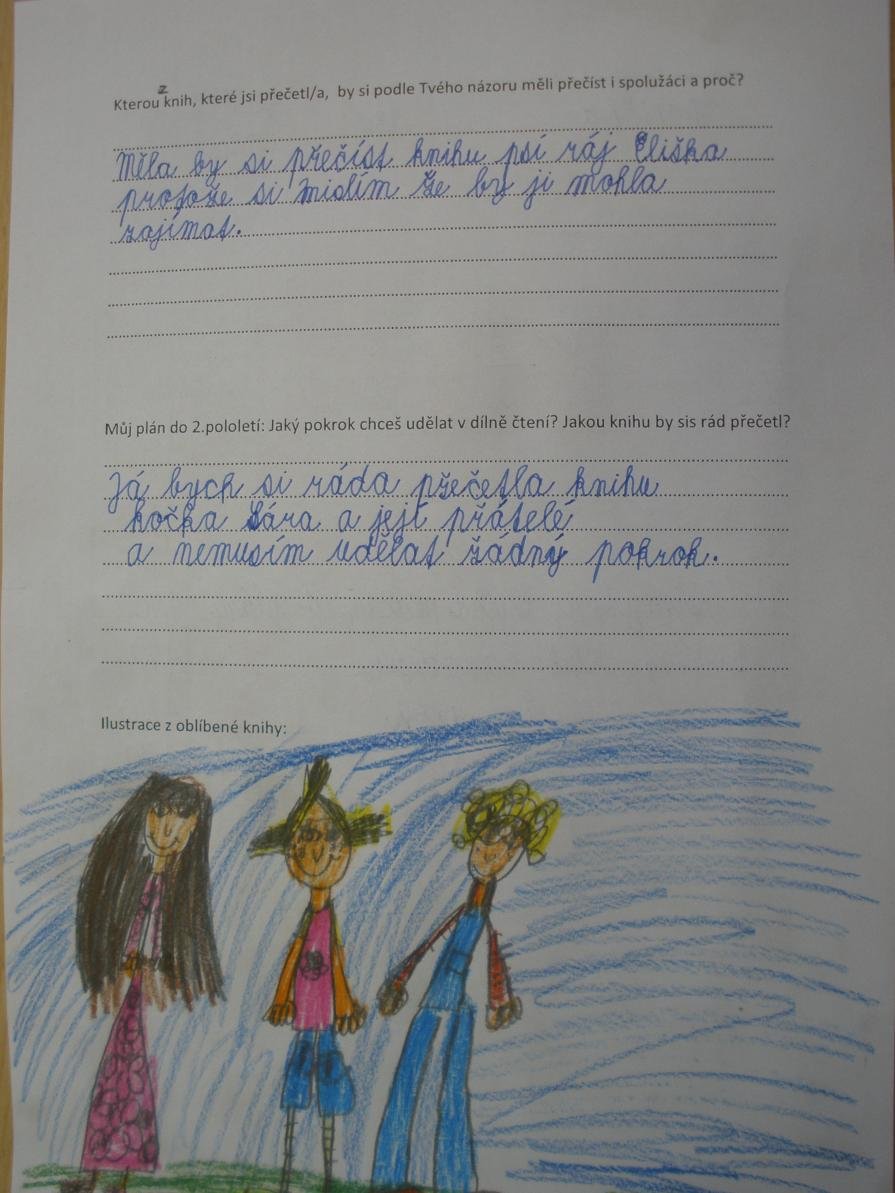 Kterou z knih, které jsi přečetl/a, by si podle Tvého názoru měli přečíst i spolužáci a proč?
Měla by si přečíst knihu psí ráj Eliška
protože si mislím že by ji mohla
zajímat.
Můj plán do 2.pololetí: Jaký pokrok chceš udělat v dílně čtení? Jakou knihu by sis rád přečetl?
Já bych si ráda pžečetla knihu
kočka Sára a její přátelé
a nemusím udělat žádný pokrok.
Ilustrace z oblíbené knihy: